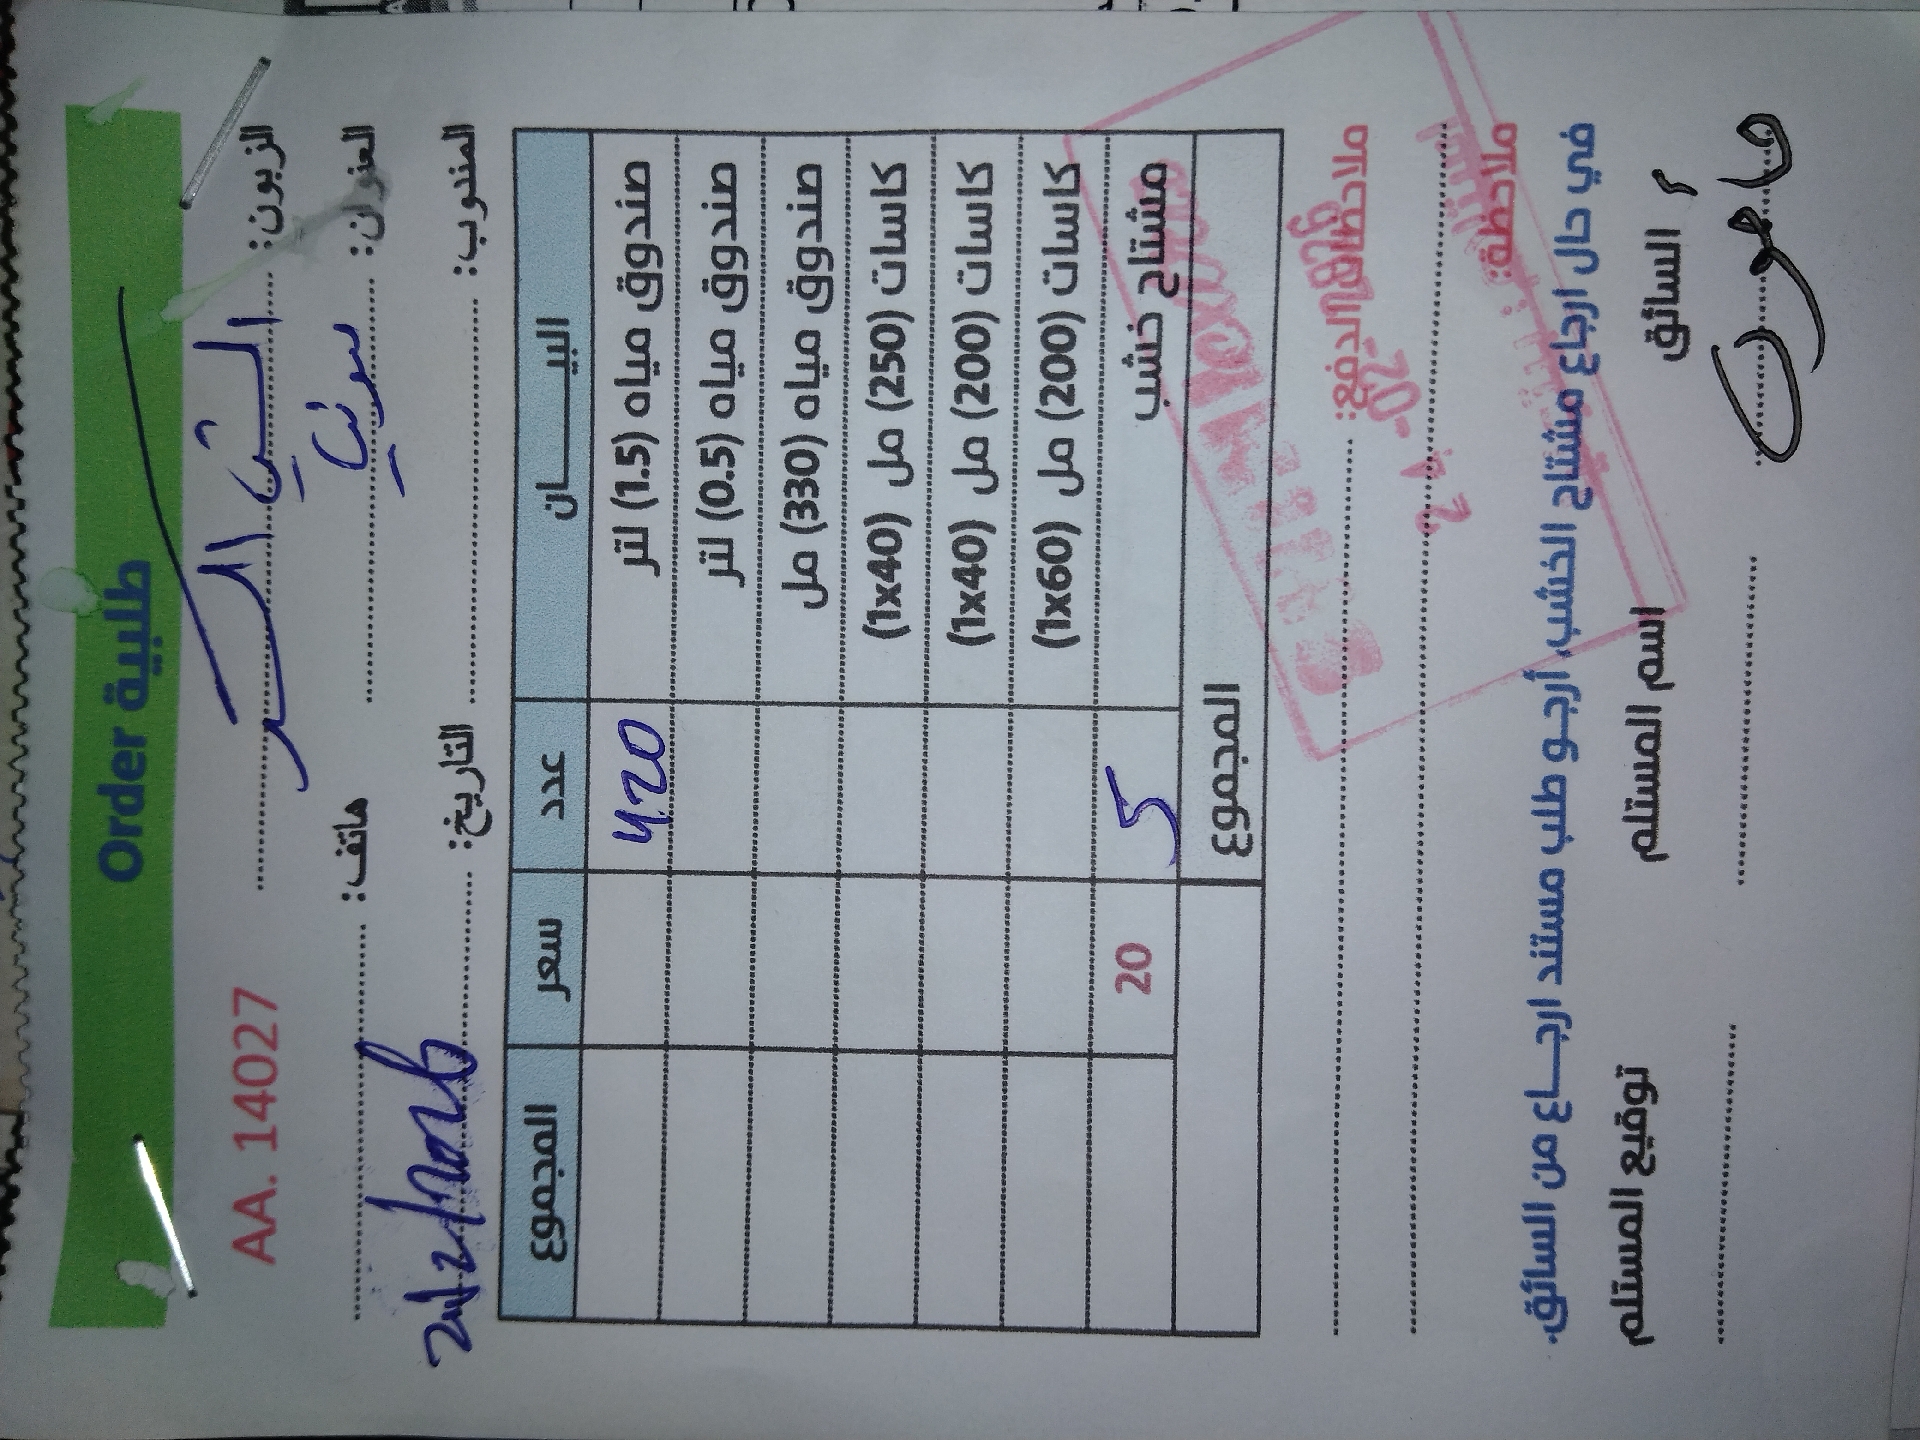 طلبية Order
الزبون:
AA. 14027
العنوان:
هاتف:
المندوب:
التاريخ:
البيــــــان عدد سعر المجموع
صندوق مياه (1.5) لتر 420
صندوق مياه (0.5) لتر
صندوق مياه (330) مل
كاسات (250) مل (1x40)
كاسات (200) مل (1x40)
كاسات (200) مل (1x60)
مشتاح خشب 5 20
المجموع
ملاحظات الدفع:
ملاحظة:
في حال ارجاع مشتاح الخشب، أرجـو طلب مستند ارجــاع من السائق.
السائق
اسم المستلم
توقيع المستلم